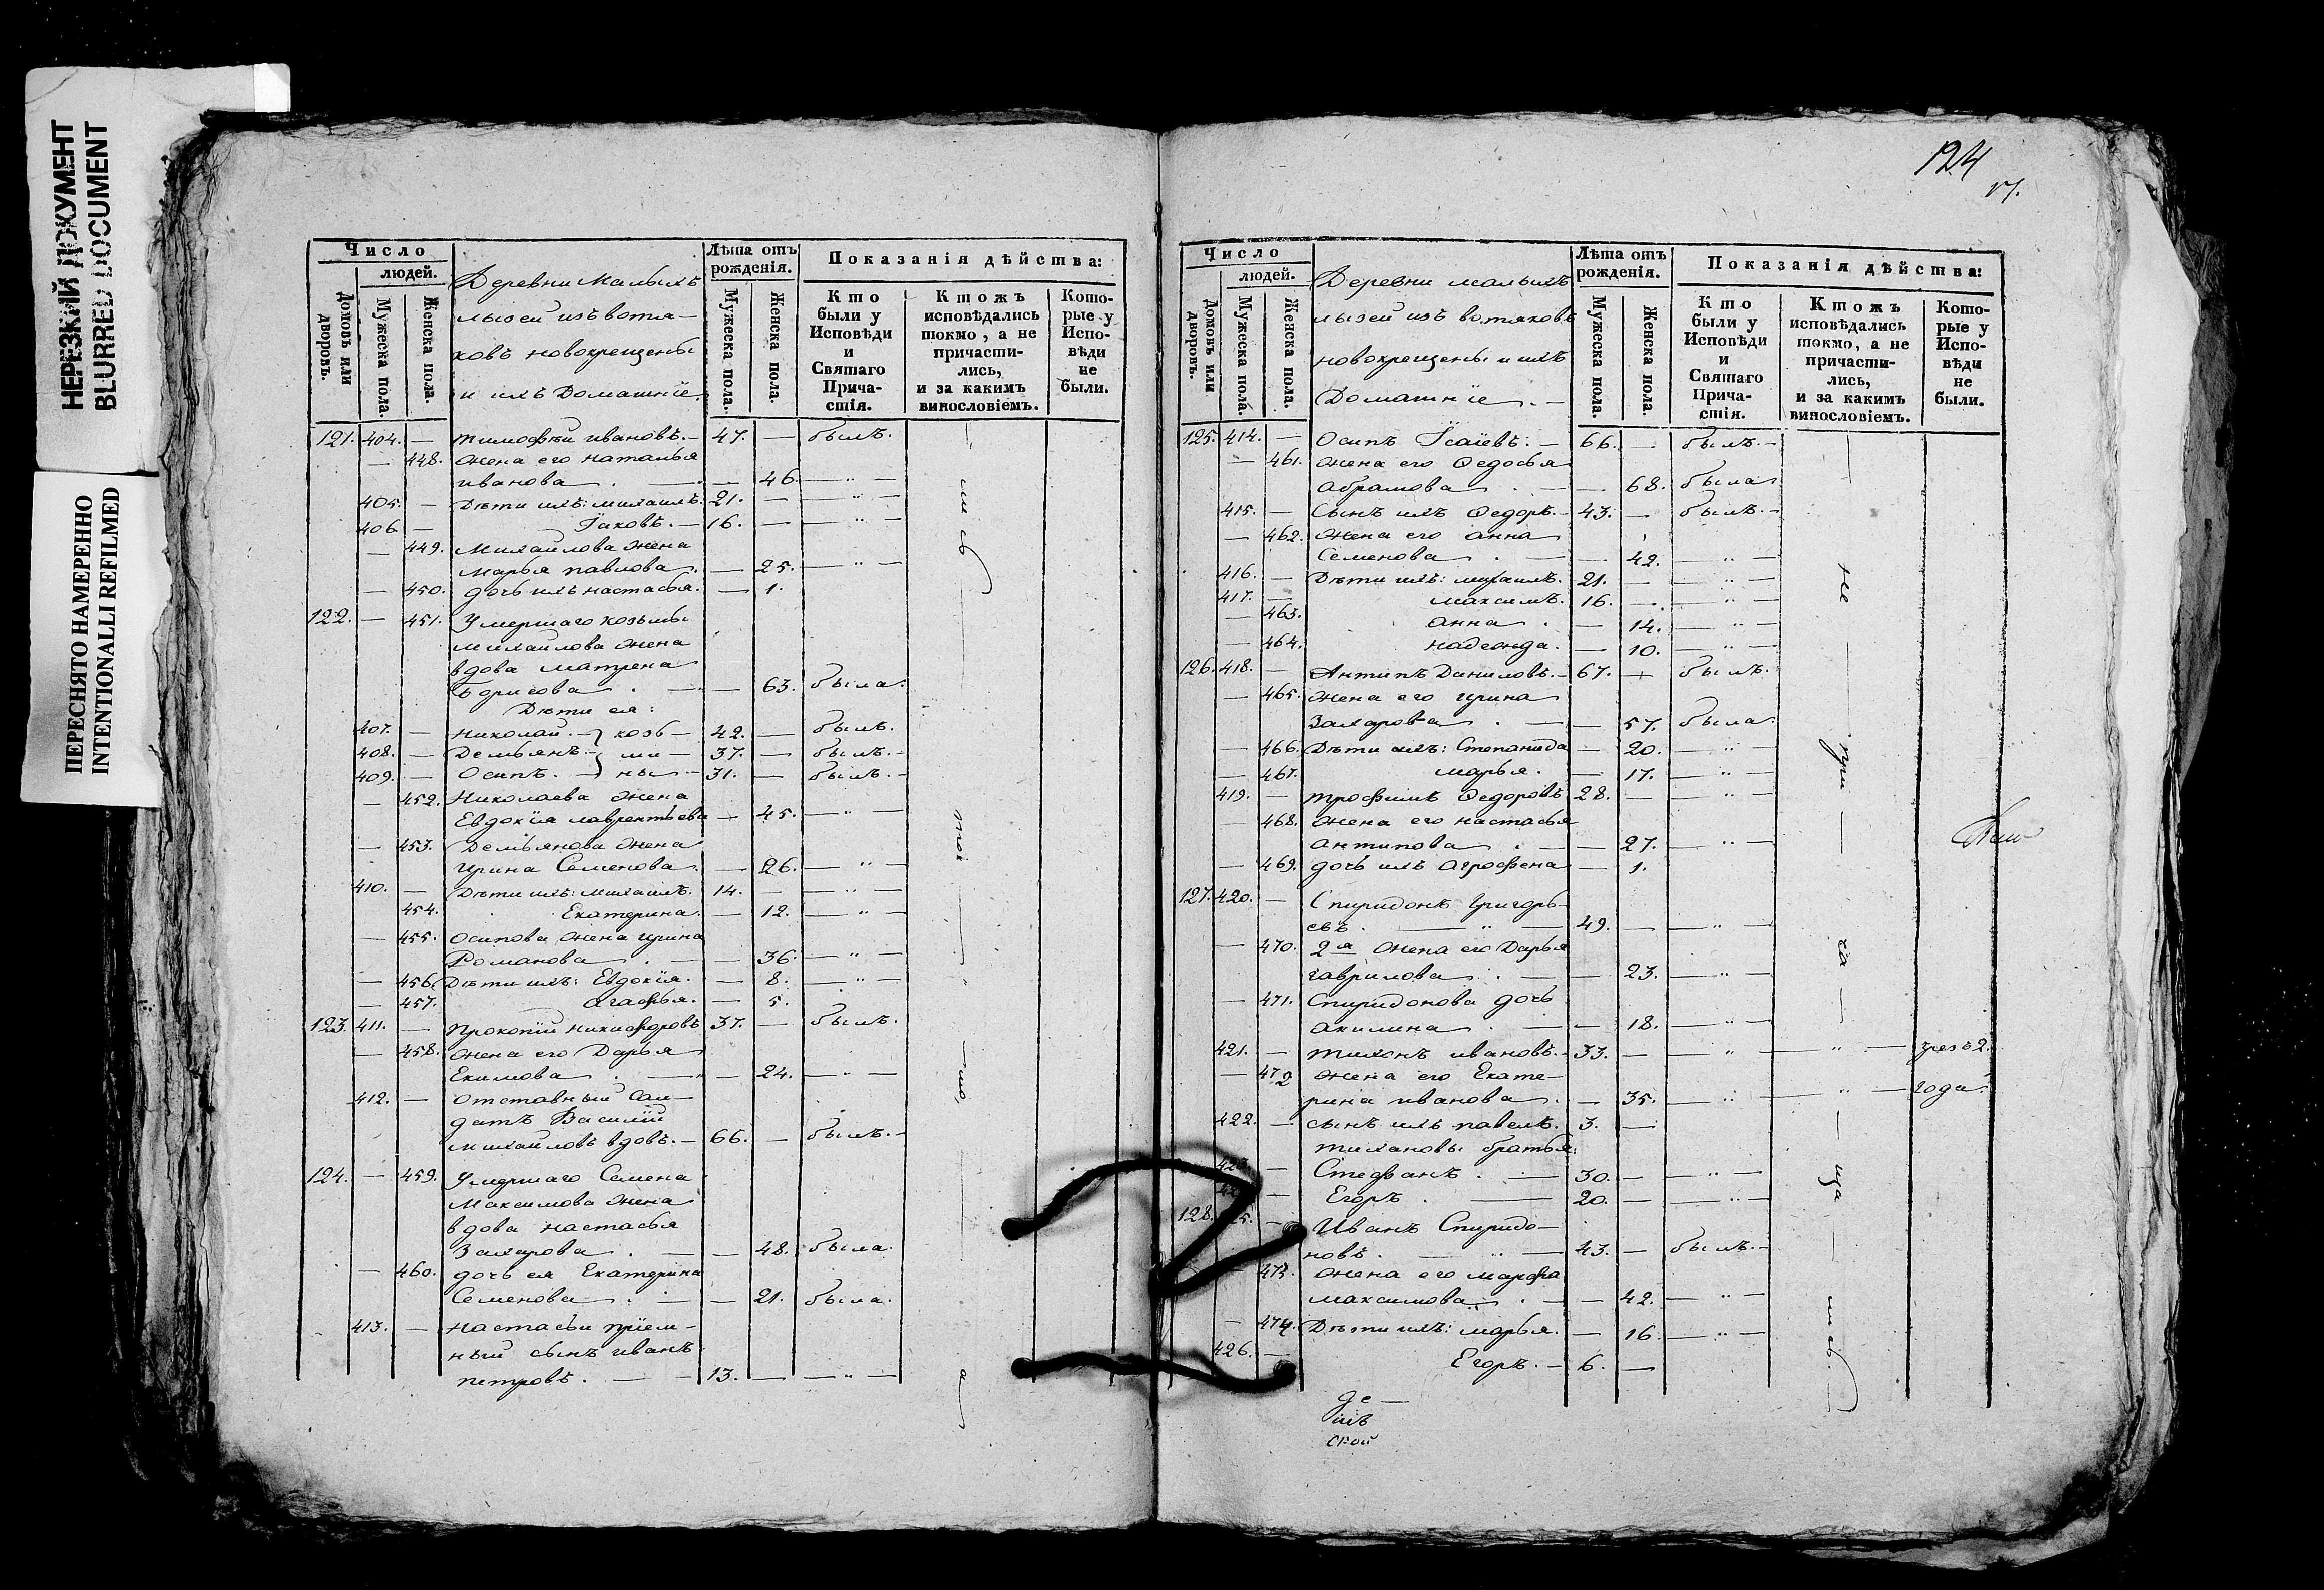 НЕРЕЗКИЙ ДОКУМЕНТ
BLURRED DOCUMENT
ПЕРЕСНЯТО НАМЕРЕННО
INTENTIONALLI REFILMED
Число
людей.
Домовъ или дворовъ.
Мужеска пола.
Женска пола.
Деревни Малыхъ
лызей изъ вотя-
ковъ новокрещены
и ихъ Домашніе
Лѣта отъ рожденія.
Мужеска пола.
Женска пола.
Показанія дѣйства:
Кто были у Исповѣди и Святаго Причастія.
Ктожъ исповѣдались токмо, а не причастились, и за какимъ винословіемъ.
Которые у Исповѣди не были.
121. 404. — тимофѣй ивановъ. — 47. — былъ.
— 448. жена его наталья
иванова. — — 46. — " —
405. — Дѣти ихъ: михаилъ. 21. — — " —
406 — Іаковъ. — 16. — — " —
— 449. Михайлова жена
марья павлова. — 25. — " —
— 450. дочь ихъ настасья. — 1.
122. — 451. Умершаго козьмы
михайлова жена
вдова матрена
борисова. — — 63. была.
Дѣти ея:
407. — николай. — козь — 42. — былъ.
408. — Демьянъ. — ми — 37. — былъ. —
409. — Осипъ. — ны — 31. — былъ. —
— 452. Николаева жена
Евдокія лаврентьева — 45. — " —
— 453. Демьянова жена
ирина Семенова. — 26. — " —
410. — Дѣти ихъ: михаилъ. 14. — — " —
454. Екатерина. — 12. — " —
— 455. осипова жена ирина
Романова. — — 36. — " —
— 456. Дѣти ихъ: Евдокія. — 8. — " —
— 457. агафья. — 5.
123. 411. — прокопій никифоровъ 37. — былъ.
— 458. жена его Дарья
Екимова. — — 24. — " —
412. — отставный сол-
датъ Василій
михайловъ вдовъ. — 66. — былъ. —
124. — 459. Умершаго Семена
Максимова жена
вдова настасья
Захарова. — — 48. была.
— 460. дочь ея Екатерина
Семенова. — — 21. была.
413. — настасьи пріем-
ный сынъ иванъ
петровъ. — — 13. — — " —
124
Число
людей.
Домовъ или дворовъ.
Мужеска пола.
Женска пола.
Деревни малыхъ
лызей изъ вотяковъ
новокрещены и ихъ
Домашніе. —
Лѣта отъ рожденія.
Мужеска пола.
Женска пола.
Показанія дѣйства:
Кто были у Исповѣди и Святаго Причастія.
Ктожъ исповѣдались токмо, а не причастились, и за какимъ винословіемъ.
Которые у Исповѣди не были.
125. 414. — Осипъ Ісаіевъ. — 66. — былъ. —
— 461. жена его Федосья
абрамова. — — 68. была
415. — Сынъ ихъ Федоръ. — 43. — былъ. —
— 462. жена его анна
Семенова. — 42. — " —
416. — Дѣти ихъ: михаилъ. 21. — — " —
417. — максимъ. 16. — — " —
— 463. анна. — 14. — " —
— 464. надежда. — 10. — " —
126. 418. — Антипъ Даниловъ. — 67. — былъ.
— 465. жена его ирина
Захарова. — — 57. была.
— 466. Дѣти ихъ: Степанида — 20. — " —
— 467. марья. — 17. — " —
419. — трофимъ Федоровъ 28. — — " —
— 468. жена его настасья
антипова. — — 27. — " —
— 469. дочь ихъ агрофена — 1.
127. 420. — Спиридонъ Григорь-
евъ. — " — 49. — — " —
— 470. 2я жена его Дарья
гаврилова. — — 23. — " —
— 471. Спиридонова дочь
акилина. — — 18. — " —
421. — тихонъ ивановъ. — 33. — — " — — " — чрезъ 2.
— 472 жена его Екате-
рина иванова. — 35. — " — — " — года.
422. — сынъ ихъ павелъ. 3. —
тихановы братья:
423. — Стефанъ. — 30. — — " —
— Егоръ. — 20. — — " —
128. — Иванъ Спиридо-
новъ. — " — 43. — былъ. —
— 473. жена его марфа
максимова. — — 42. — " —
— 474. Дѣти ихъ: марья. — 16. — " —
426. — Егоръ. — 6. —
не — при — ча — ща — лись.